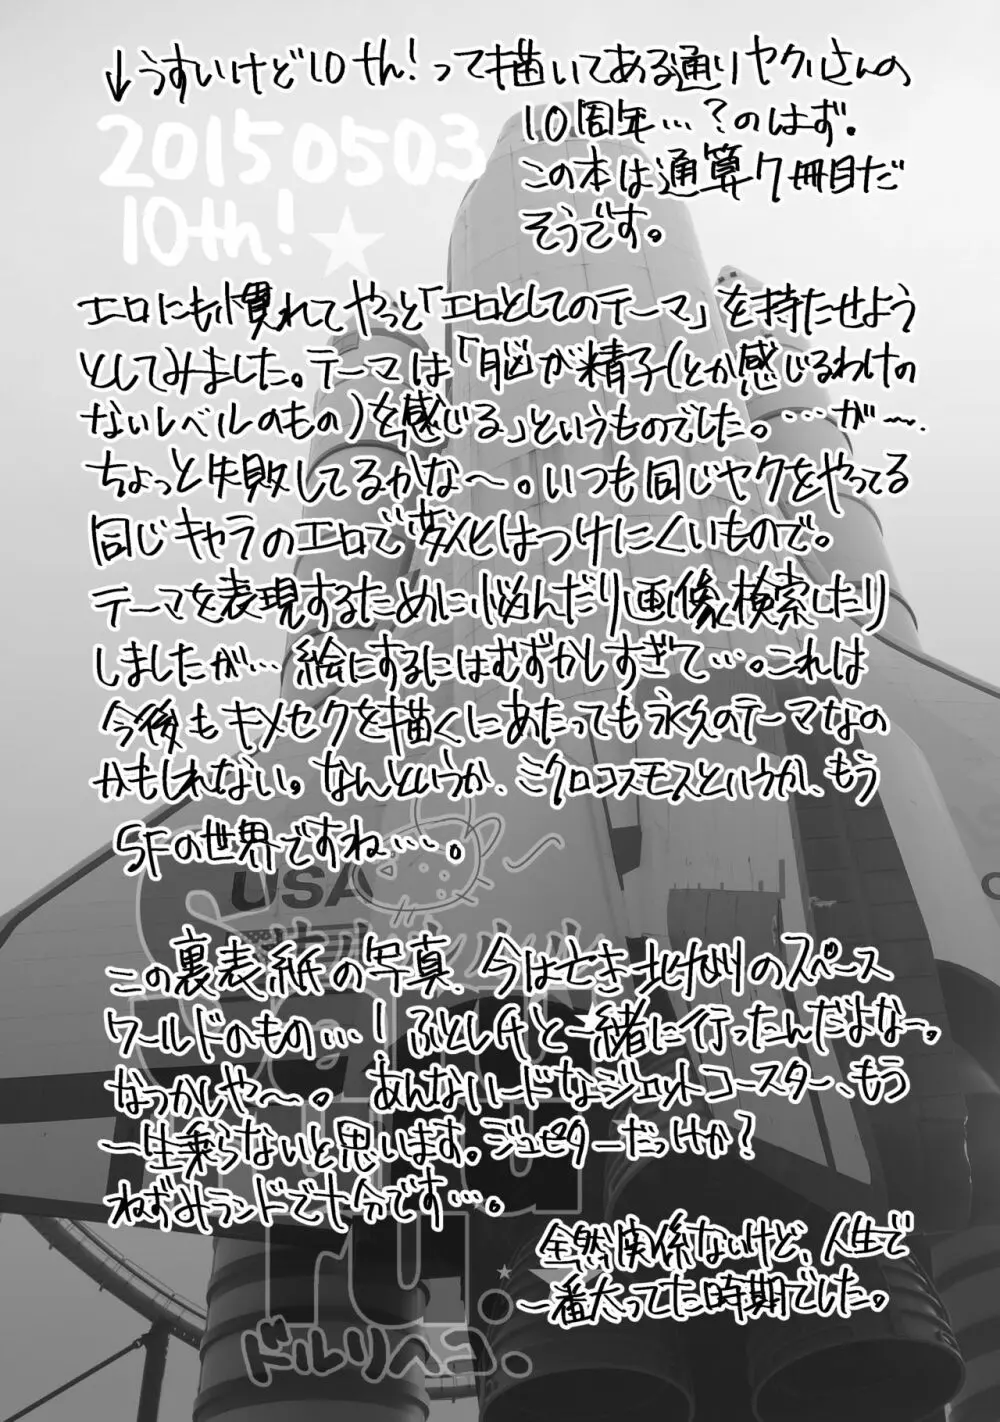 ↓うすいけど10th!って描いてある通りヤクルさんの
10周年…?のはず。
この本は通算7冊目だ
そうです。
20150503
10th!★
エロにも慣れてやっと「エロとしてのテーマ」を持たせよう
としてみました。テーマは「脳が精子(とか感じるわけの
ないレベルのもの)を感じる」というものでした。……が〜、
ちょっと失敗してるかな〜。いつも同じヤクをやってる
同じキャラのエロで変化はつけにくいもので。
テーマを表現するために悩んだり画像検索したり
しましたが…絵にするにはむずかしすぎて…。これは
今後もキメセクを描くにあたっても永久のテーマなの
かもしれない。なんというか、ミクロコスモスというか、もう
SFの世界ですね…。
USA
この裏表紙の写真、今は亡き北九州のスペース
ワールドのもの…!ふとし氏と一緒に行ったんだよな〜。
なつかしや〜。あんなハードなジェットコースター、もう
一生乗らないと思います。ジュピターだっけか?
ねずみランドで十分です…。
全然関係ないけど、人生で
一番太ってた時期でした。
ru.
ドルリヘコ.